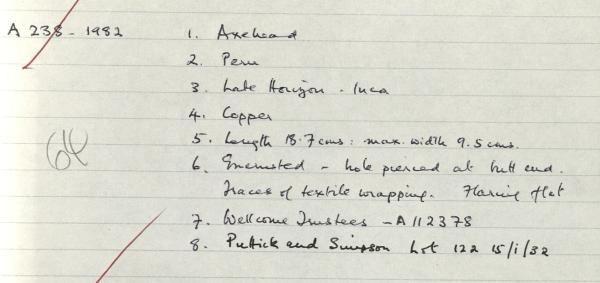 A 238 - 1982
1. Axehead
2. Peru
3. Late Horizon - Inca
4. Copper
5. Length 18.7 cms : max. width 9.5 cms.
6. Encrusted - hole pierced at butt end.
Traces of textile wrapping. Flaring flat
64
7. Wellcome Trustees - A 112378
8. Puttick and Simpson Lot 122 15/1/32